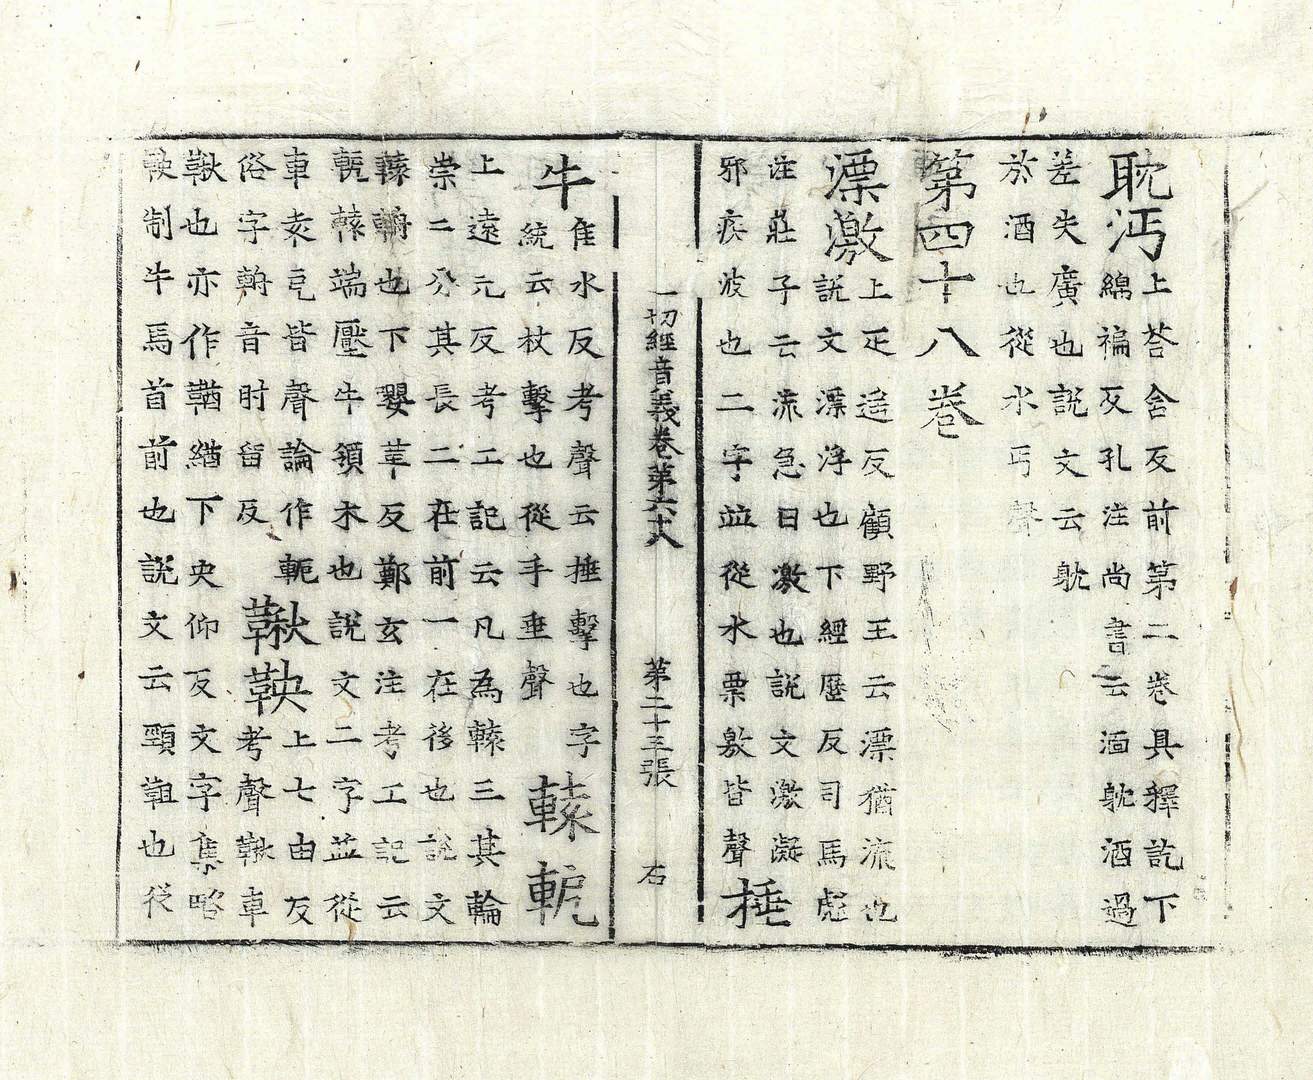 耽沔上荅含反前第二卷具釋訖下
綿褊反孔注尚書云湎躭酒過
差失廣也說文云躭
於酒也從水丏聲
第四十八卷
漂激上疋遥反顧野王云漂猶流也
說文漂浮也下經歷反司馬彪
注莊子云流急曰激也說文激凝
邪疾波也二字並從水票敫皆聲捶
一切經音義卷第六十八 第二十三張 右
牛隹水反考聲云捶擊也字
統云杖擊也從手垂聲轅軶
上遠元反考工記云凡為轅三其輪
崇二分其長二在前一在後也說文
轅輈也下甖莖反鄭玄注考工記云
軶轅端壓牛領木也說文二字並從
車袁戹皆聲論作軛
俗字輈音肘留反鞦鞅上七由反
考聲鞦車
鞦也亦作鞧緧下央仰反文字集略
鞅制牛馬首前也說文云頸靼也從